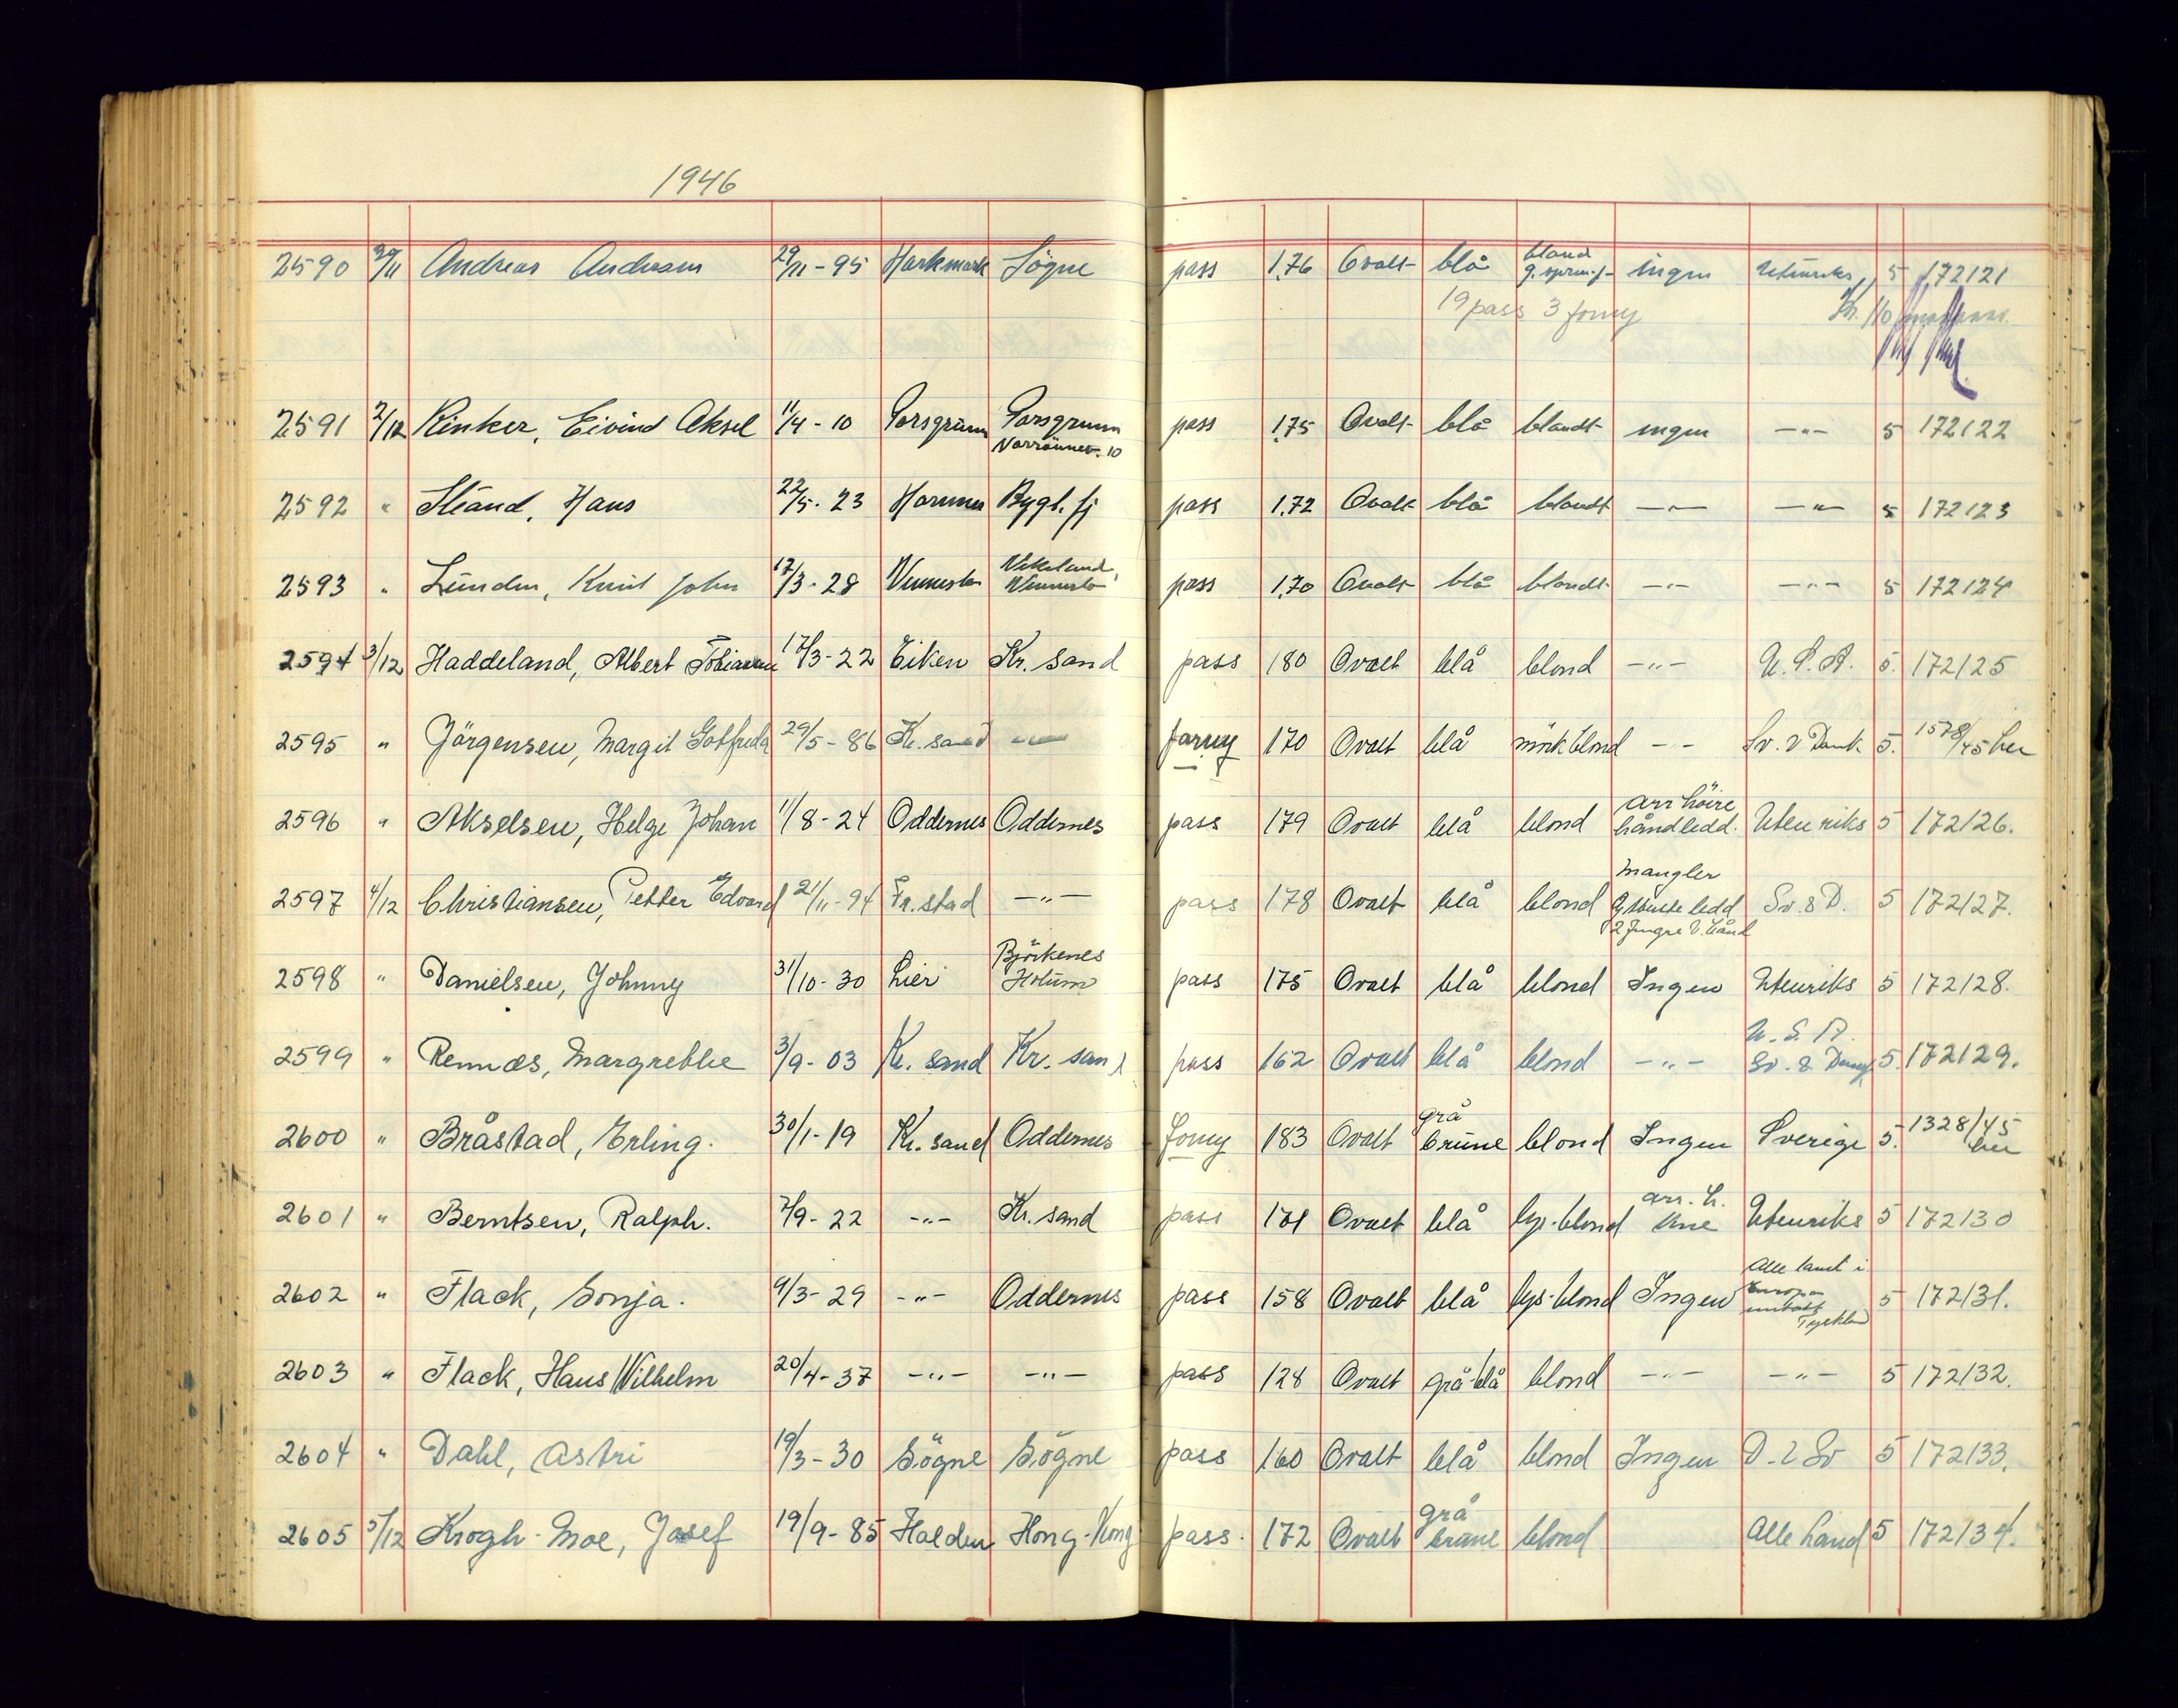 1946
2590 29/11 Andreas Andersen 29/11-95 Harkmark Sögne pass 1.76 Ovalt blå blond g. spreng- ingen Utenriks 5 172121
19 pass 3 forny
2591 2/12 Rinker, Eivind Aksel 11/4-10 Porsgrunn Porsgrunn pass 1.75 Ovalt blå blondt ingen -"- 5 172122
2592 " Hans 22/5-23 Bygl. fj pass 1.72 Ovalt blå blondt -"- -"- 5 172123
2593 " Lunden, Knut John 17/3-28 Vennesla Vikeland, Vennesla pass 1.70 Ovalt blå blondt -"- -"- 5 172124
2594 3/12 Haddeland, Albert 17/3-22 Eiken Kr. sand pass 180 Ovalt blå blond -"- U.S.A. 5. 172125
2595 " Jörgensen, Margit Gotfreda 29/5-86 Kr. sand -"- forny 170 Ovalt blå mörk blond -"- Sv. & Dank 5. 1578/45 her
2596 " Akselsen, Helge Johan 11/8-24 Oddernes Oddernes pass 179 Ovalt blå blond arr höire håndledd. Utenriks 5 172126.
2597 4/12 Christiansen, Petter Edvard 21/11-94 Fr. stad -"- pass 178 Ovalt blå blond mangler ledd 2 fingre V. hånd Sv. & D. 5 172127.
2598 " Danielsen, Johnny 31/10-30 Lier Björkenes Holum pass 175 Ovalt blå blond Ingen Utenriks 5 172128.
2599 " Rennæs, Margrethe 3/9-03 Kr. sand Kr. sand pass 162 Ovalt blå blond -"- U.S.A. Sv. & Danm 5. 172129.
2600 " Bråstad, Erling. 30/1-19 Kr. sand Oddernes forny 183 Ovalt grå brune blond Ingen Sverige 5. 1328/45 her
2601 " Berntsen, Ralph. 7/9-22 -"- Kr. sand pass Ovalt blå lys-blond arr. h. kne Utenriks 5 172130
2602 " Flack, Sonja. 9/3-29 -"- Oddernes pass 158 Ovalt blå lys-blond Ingen Alle land i Europa untatt Tyskland 5 172131.
2603 " Flack, Hans Wilhelm 20/4-37 -"- -"- pass 128 Ovalt grå-blå blond -"- -"- 5 172132.
2604 " Dahl, Astri 19/3-30 Sögne Sögne pass 160 Ovalt blå blond Ingen D. & Sv 5 172133.
2605 5/12 Krogh-Moe, Josef 19/9-85 Halden Hong-Kong pass. 172 Ovalt grå brune blond Alle land 5 172134.